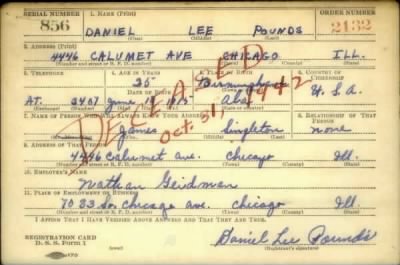 SERIAL NUMBER 1. NAME (Print) ORDER NUMBER
856 DANIEL LEE POUNDS 2132
(First) (Middle) (Last)
2. ADDRESS (Print)
4446 CALUMET AVE CHICAGO ILL.
(Number and street or R. F. D. number) (Town) (County) (State)
3. TELEPHONE 4. AGE IN YEARS 5. PLACE OF BIRTH 6. COUNTRY OF CITIZENSHIP
25 Birmingham
DATE OF BIRTH
AT. 3407 June Ala. U. S. A.
DECEASED
Oct. 31, 1942
7. NAME OF PERSON WHO WILL ALWAYS KNOW YOUR ADDRESS 8. RELATIONSHIP OF THAT PERSON
James Singleton none
9. ADDRESS OF THAT PERSON
4446 Calumet ave. Chicago Ill.
(Number and street or R. F. D. number) (Town) (County) (State)
10. EMPLOYER'S NAME
Nathan Geidman
11. PLACE OF EMPLOYMENT OR BUSINESS
7033 So. Chicago ave. Chicago Ill.
(Number and street or R. F. D. number) (Town) (County) (State)
I AFFIRM THAT I HAVE VERIFIED ABOVE ANSWERS AND THAT THEY ARE TRUE.
REGISTRATION CARD
D. S. S. Form 1
Daniel Lee Pounds
(Registrant's signature)